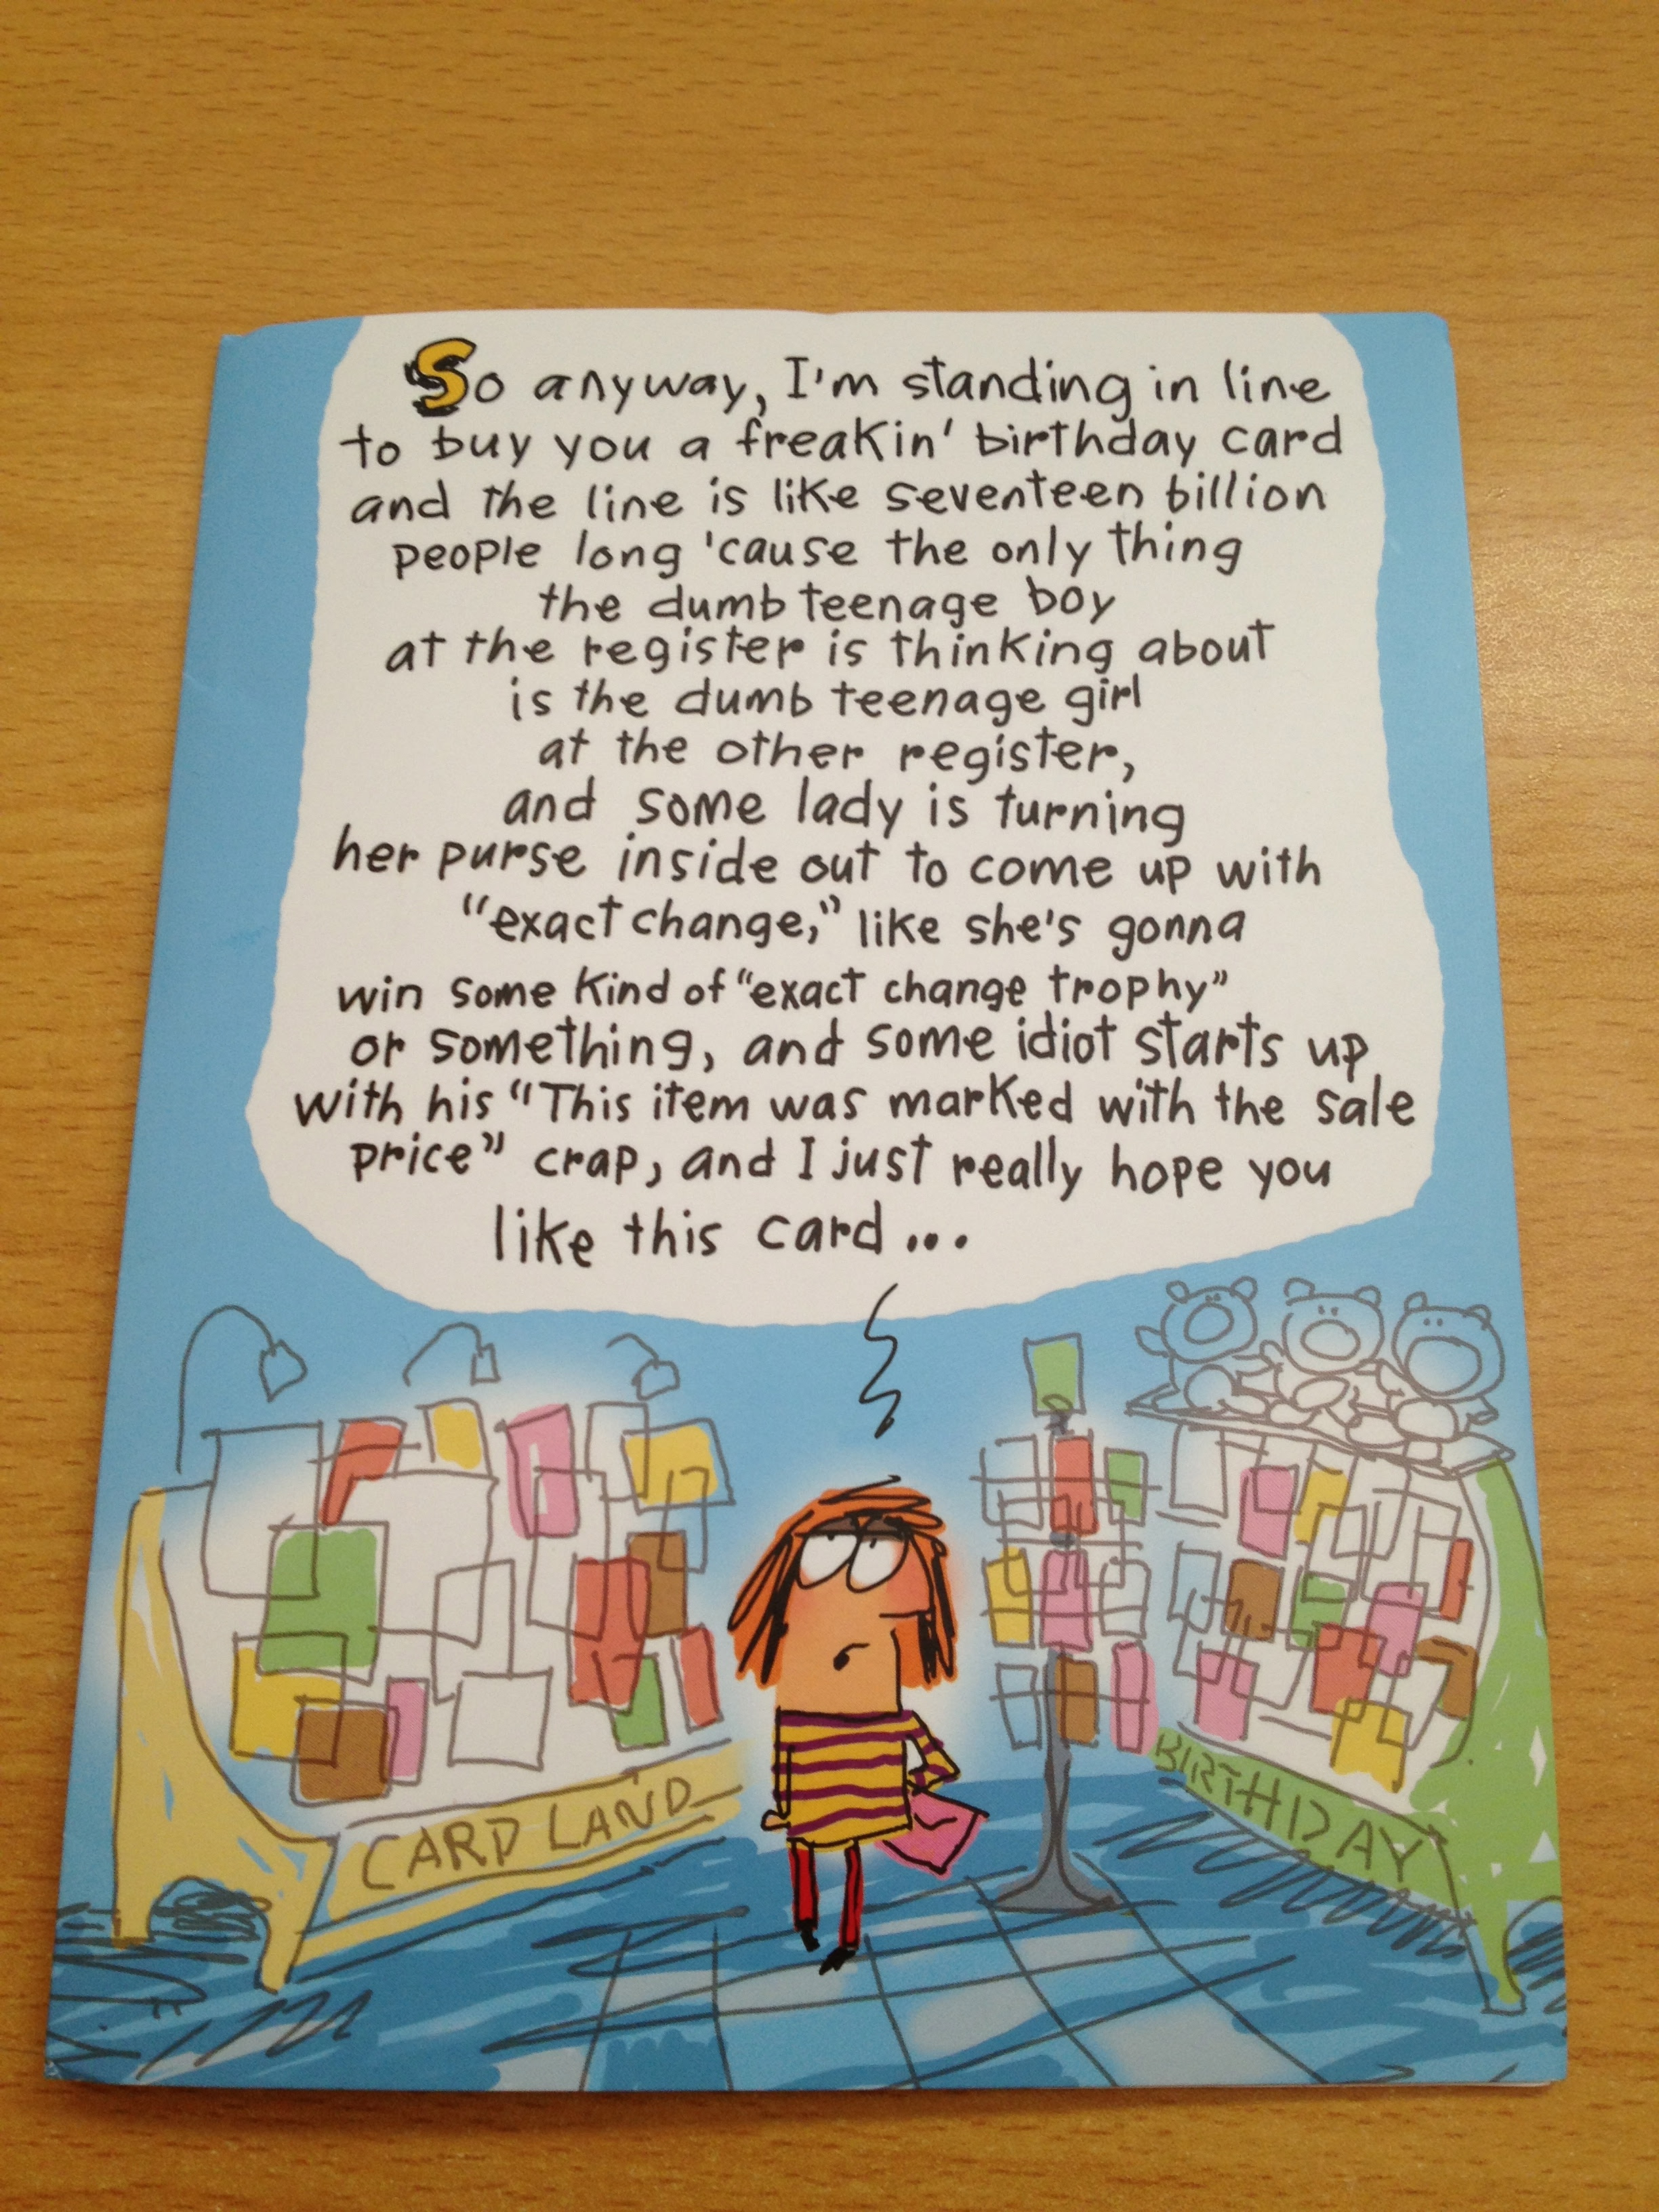 So anyway, I'm standing in line
to buy you a freakin' birthday card
and the line is like seventeen billion
people long 'cause the only thing
the dumb teenage boy
at the register is thinking about
is the dumb teenage girl
at the other register,
and some lady is turning
her purse inside out to come up with
"exact change," like she's gonna
win some kind of "exact change trophy"
or something, and some idiot starts up
with his "This item was marked with the sale
price" crap, and I just really hope you
like this card...
CARD LAND
BIRTHDAY